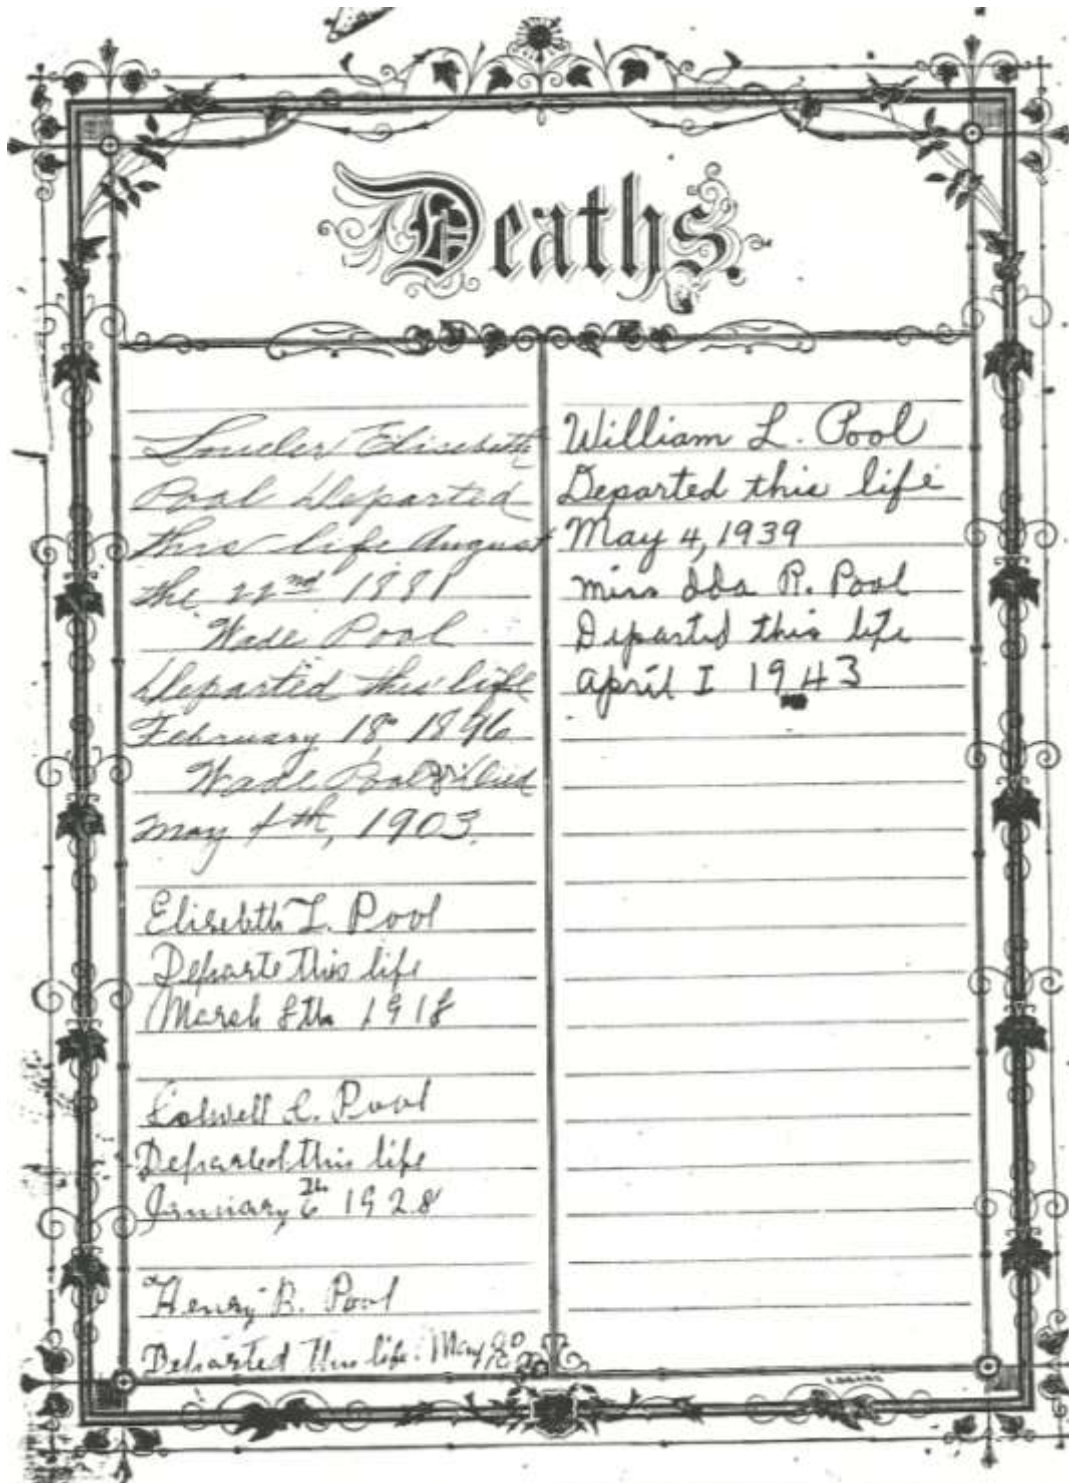 Deaths.
Elisebeth
Pool Departed
this life August
the 22nd 1881
Wade Pool
Departed this life
February 18, 1896
Wade Pool Died
May 4th, 1903.
Elisebth L. Pool
Departe this life
March 8th 1918
Colwell L. Pool
Departed this life
January 6th 1928
Henry B. Pool
Departed this life. May
William L. Pool
Departed this life
May 4, 1939
miss Ida R. Pool
Departed this life
april I 1943